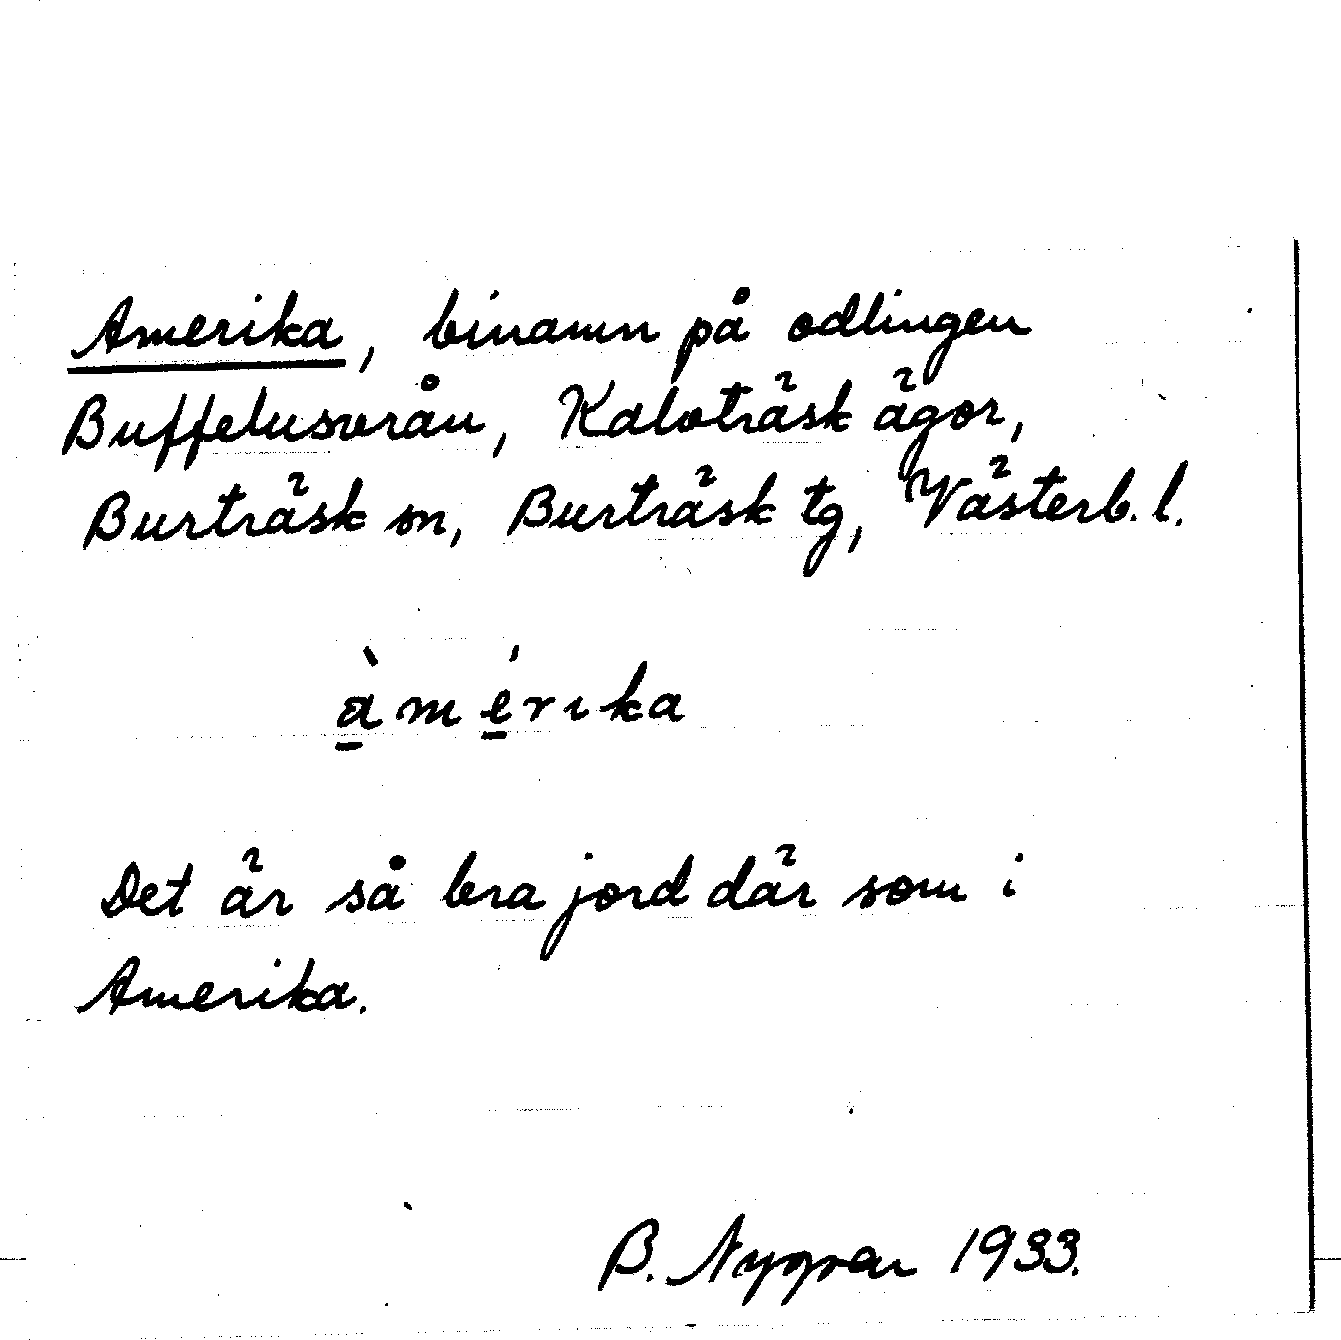 Amerika, binamn på odlingen
Buffelusvrån, Kalvträsk ägor,
Burträsk sn, Burträsk tg, Västerb. l.
àmérika
Det är så bra jord där som i
Amerika.
B. Nygren 1933.